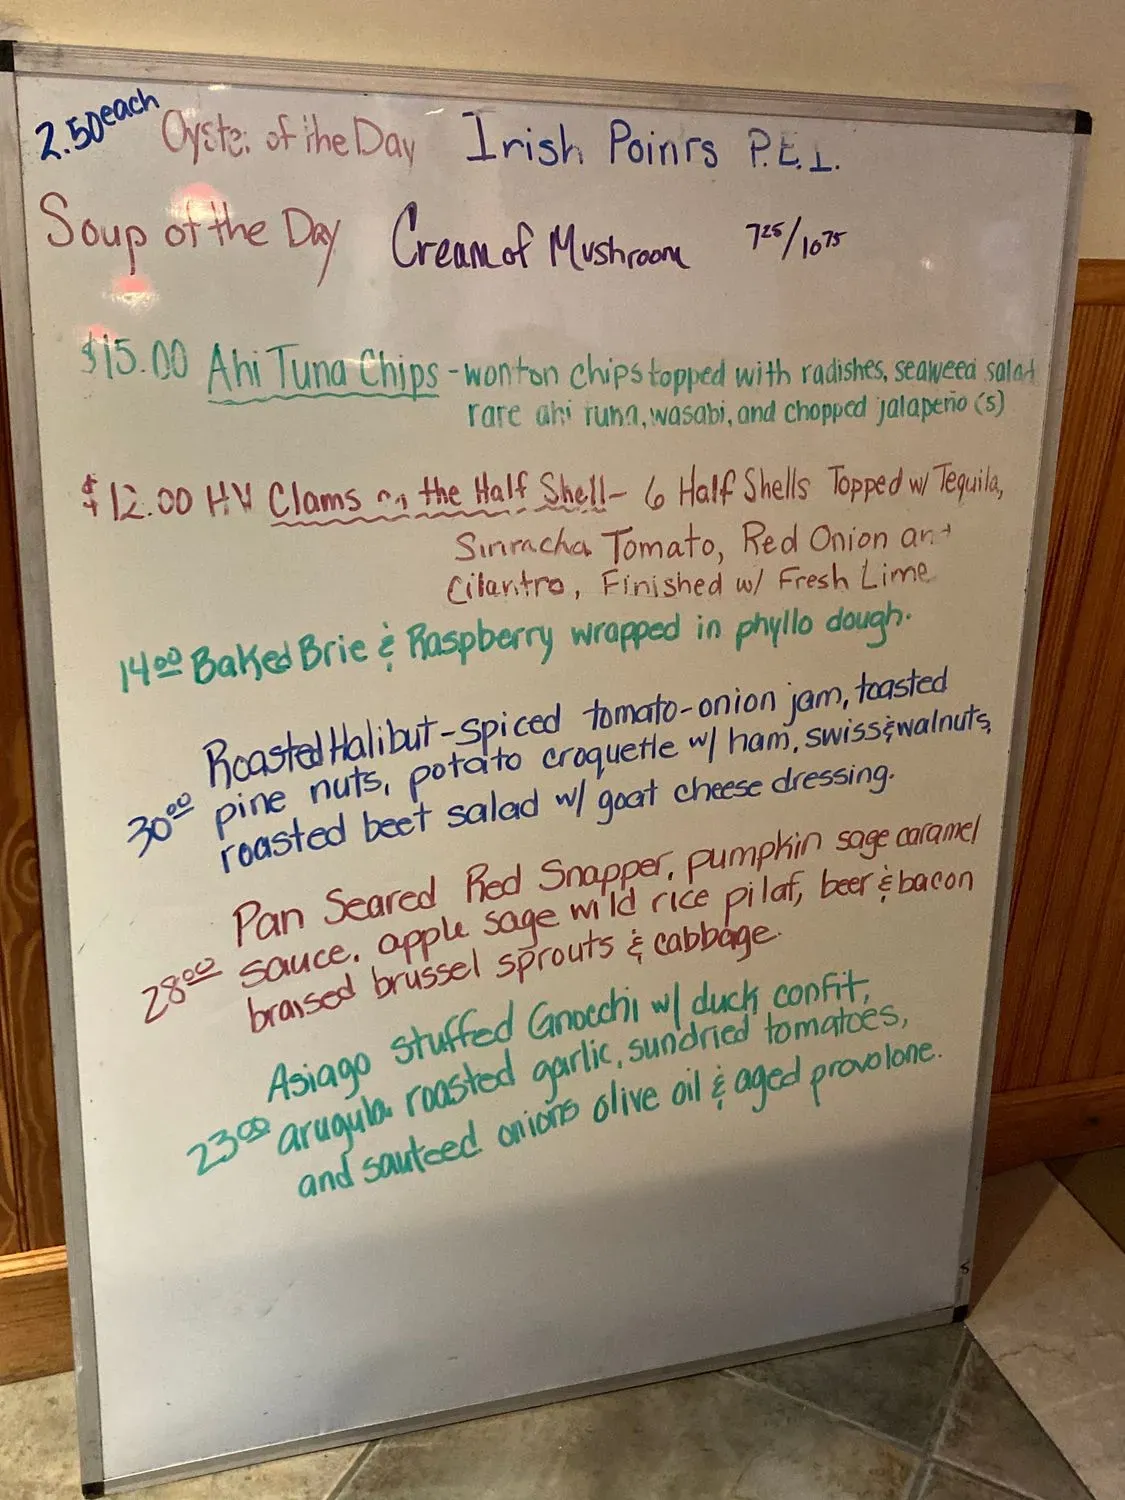 2.50 each Oyster of the Day Irish Points P.E.I.
Soup of the Day Cream of Mushroom 7 25/10 75
$15.00 Ahi Tuna Chips - wonton chips topped with radishes, seaweed salad
rare ahi tuna, wasabi, and chopped jalapeño (s)
$12.00 HV Clams on the Half Shell - 6 Half Shells Topped w/ Tequila,
Sriracha Tomato, Red Onion and
Cilantro, Finished w/ Fresh Lime
14 00 Baked Brie & Raspberry wrapped in phyllo dough.
Roasted Halibut - spiced tomato-onion jam, toasted
30 00 pine nuts, potato croquette w/ ham, swiss & walnuts,
roasted beet salad w/ goat cheese dressing.
Pan Seared Red Snapper, pumpkin sage caramel
28 00 sauce, apple sage wild rice pilaf, beer & bacon
braised brussel sprouts & cabbage.
Asiago stuffed Gnocchi w/ duck confit,
23 00 arugula roasted garlic, sundried tomatoes,
and sauteed onions olive oil & aged provolone.